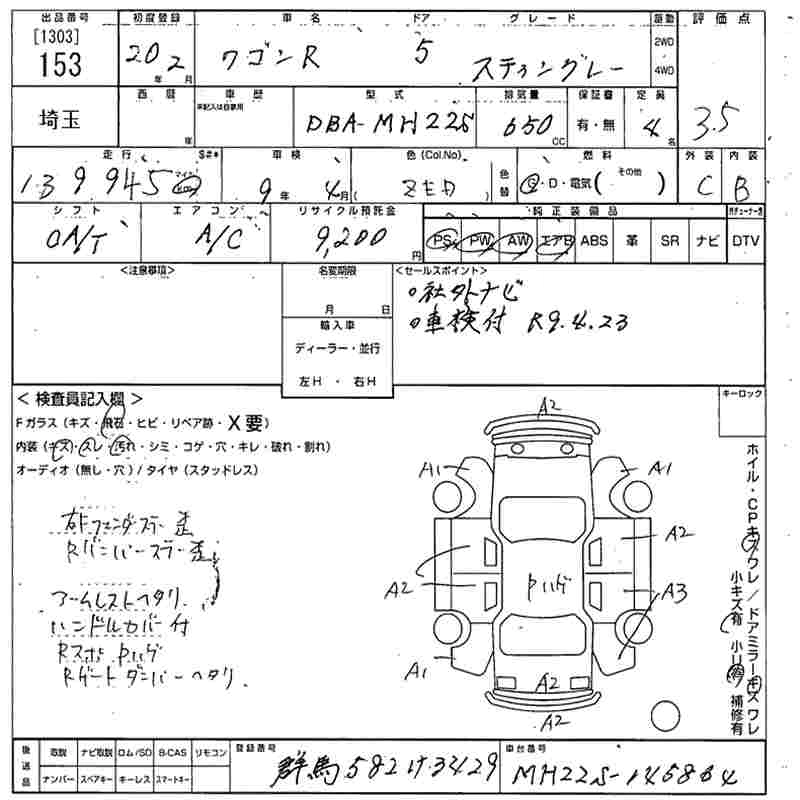 出品番号 初度登録 車名 ドア グレード 駆動 評価点
[1303] 153 20年 2月 ワゴンR 5 スティングレー 2WD 4WD
埼玉 西暦 年 車歴 未記入は自家用 型式 排気量 保証書 定員
DBA-MH22S 650 CC 有・無 4名 3.5
走行 $#* 車検 色(Col.No) 色替 燃料 外装 内装
139945 9年 4月 ( ZED ) G・D・電気( その他 ) C B
シフト エアコン リサイクル預託金 純正装備品
OA/T A/C 9,200円 PS PW AW エアB ABS 革 SR ナビ DTV
<注意事項> 名変期限 <セールスポイント>
月 日 ○社外ナビ
輸入車 ○車検付 R9.4.23
ディーラー・並行
左H・右H
< 検査員記入欄 > キーロック
Fガラス(キズ・飛石・ヒビ・リペア跡・X要)
内装(キズ・スレ・汚れ・シミ・コゲ・穴・キレ・破れ・割れ)
オーディオ(無し・穴)/タイヤ(スタッドレス)
A2
A1 A1
右Fフェンダスラー歪
Rバンパースラー歪
A2 A2
Pハゲ
アームレストヘタリ
A3
ハンドルカバー付
Rスポ Pハゲ
Rゲートダンパーヘタリ
A1 A2
A2
ホイル・CPキズワレ/ドアミラーキズワレ
小キズ有 小凹有 補修有
後送品 取説 ナビ取説 ロム/SD B-CAS リモコン 登録番号 車台番号
ナンバー スペアキー キーレス スマートキー 群馬582け3429 MH22S-145864